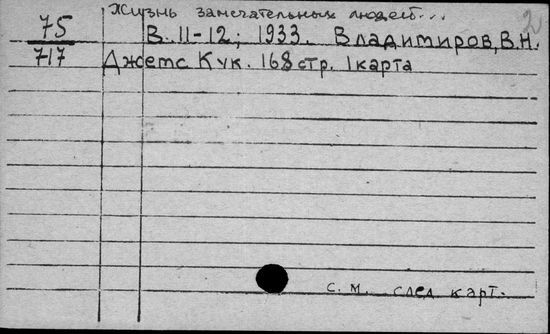 Жизнь замечательных людей...
2
75
В. 11-12; 1933. Владимиров, В.Н.
717
Джемс Кук. 168 стр. 1 карта
с.м. след карт.